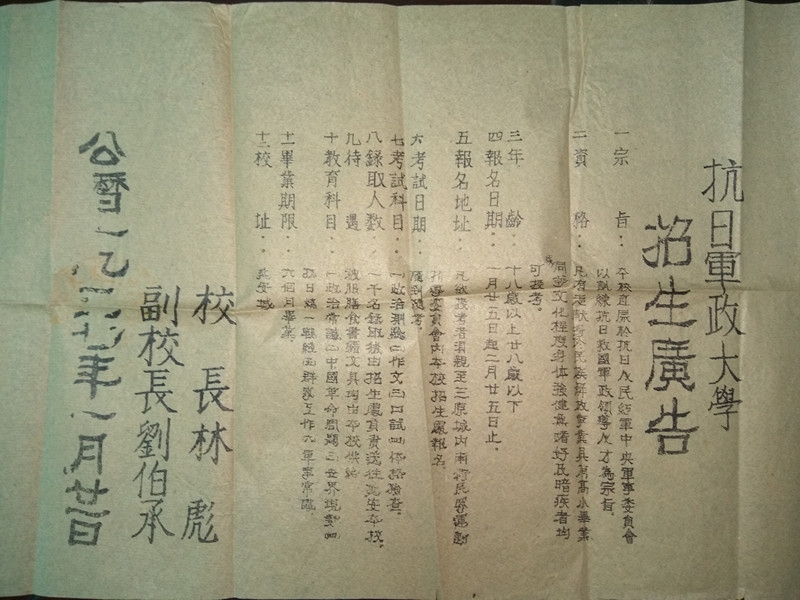 抗日軍政大學
招生廣告
一宗　旨：本校直屬於抗日人民紅軍中央軍事委員會
以訓練抗日救國軍政領導人才為宗旨。
二資　格：凡有志献身於民族解放事業具有高小畢業
同等文化程度身体強健無嗜好及暗疾者均
可投考。
三年　齡：十八歲以上廿八歲以下
四報名日期：一月廿五日起二月廿五日止。
五報名地址：凡欲投考者須親至三原城內南街民眾運動
指導委員會內本校招生處報名
六考試日期：隨到隨考。
七考試科目：一政治測驗二作文三口試四体格檢查。
八錄取人數：一千名錄取後由招生處負責送往延安本校。
九待　遇：被服膳食書籍文具均由本校供給
十教育科目：一政治常識二中國革命問題三世界現勢四
抗日統一戰線五群眾工作六軍事常識
十一畢業期限：六個月畢業
十二校　址：延安城
校　長林　彪
副校長劉伯承
公曆一九三七年一月廿日